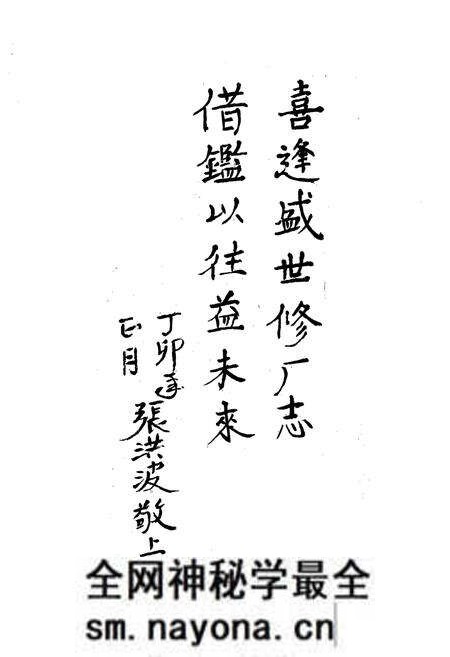 喜逢盛世修厂志
借鑑以往益未來
丁卯年
正月
張洪波敬上
全网神秘学最全
sm.nayona.cn